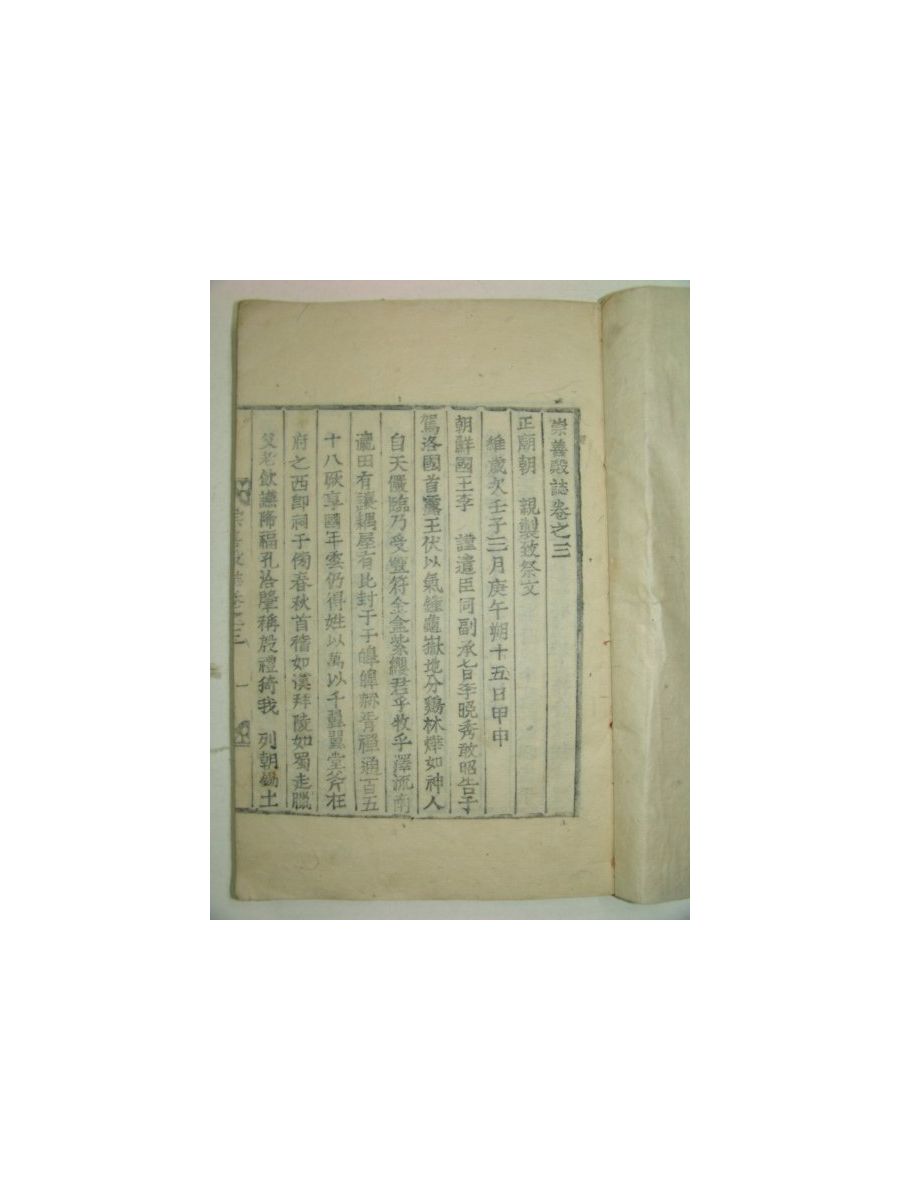 崇善殿誌卷之三
正廟朝 親製致祭文
維歲次壬子三月庚午朔十五日甲申
朝鮮國王李 謹遣臣同副承旨李晩秀敢昭告于
駕洛國首露王伏以氣鍾龜嶽地分鷄林燁如神人
自天儼臨乃受璽符金盒紫纓君乎牧乎澤流南
瀛田有讓耦屋有比封于于皥皥緜胥禪通百五
十八厥享國年雲仍得姓以萬以千翼翼堂斧在
府之西卽祠于傍春秋首稽如漢拜陵如蜀走臘
父老飮讌降福孔洽肇稱殷禮猗我 列朝錫土